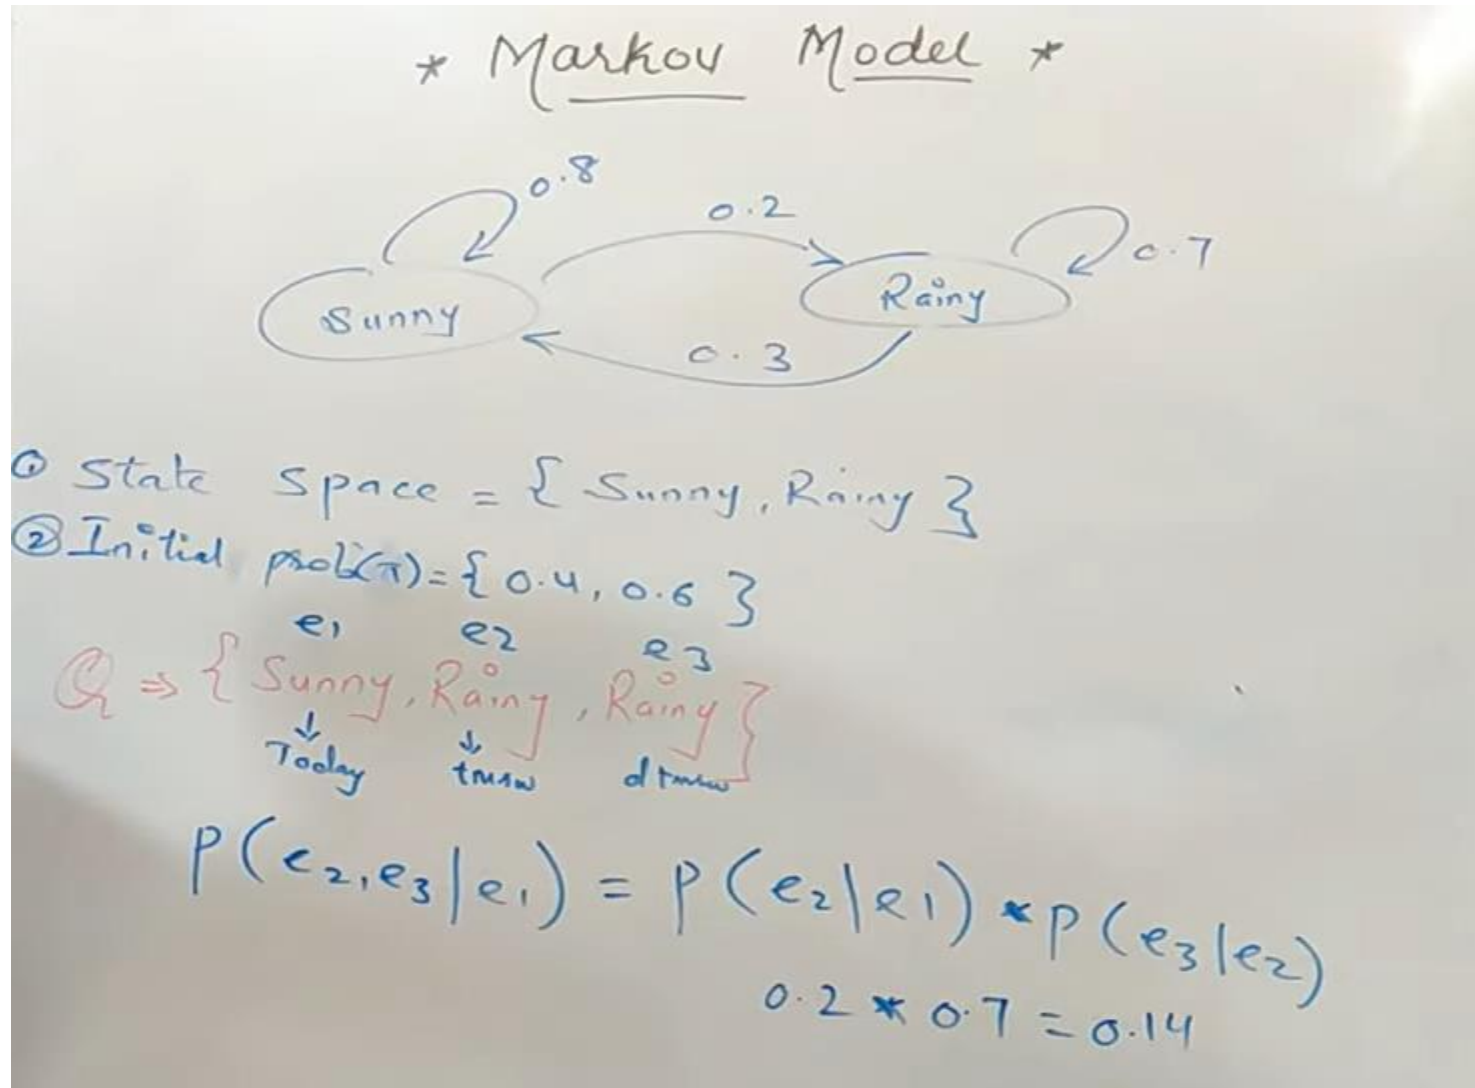 * Markov Model *
0.8
0.2
0.7
Sunny
Rainy
0.3
① State Space = { Sunny, Rainy }
② Initial prob(π) = { 0.4, 0.6 }
e1 e2 e3
Q ⇒ { Sunny, Rainy, Rainy }
↓ ↓
Today tmrw dtmrw
P(e2,e3|e1) = P(e2|e1) * P(e3|e2)
0.2 * 0.7 = 0.14